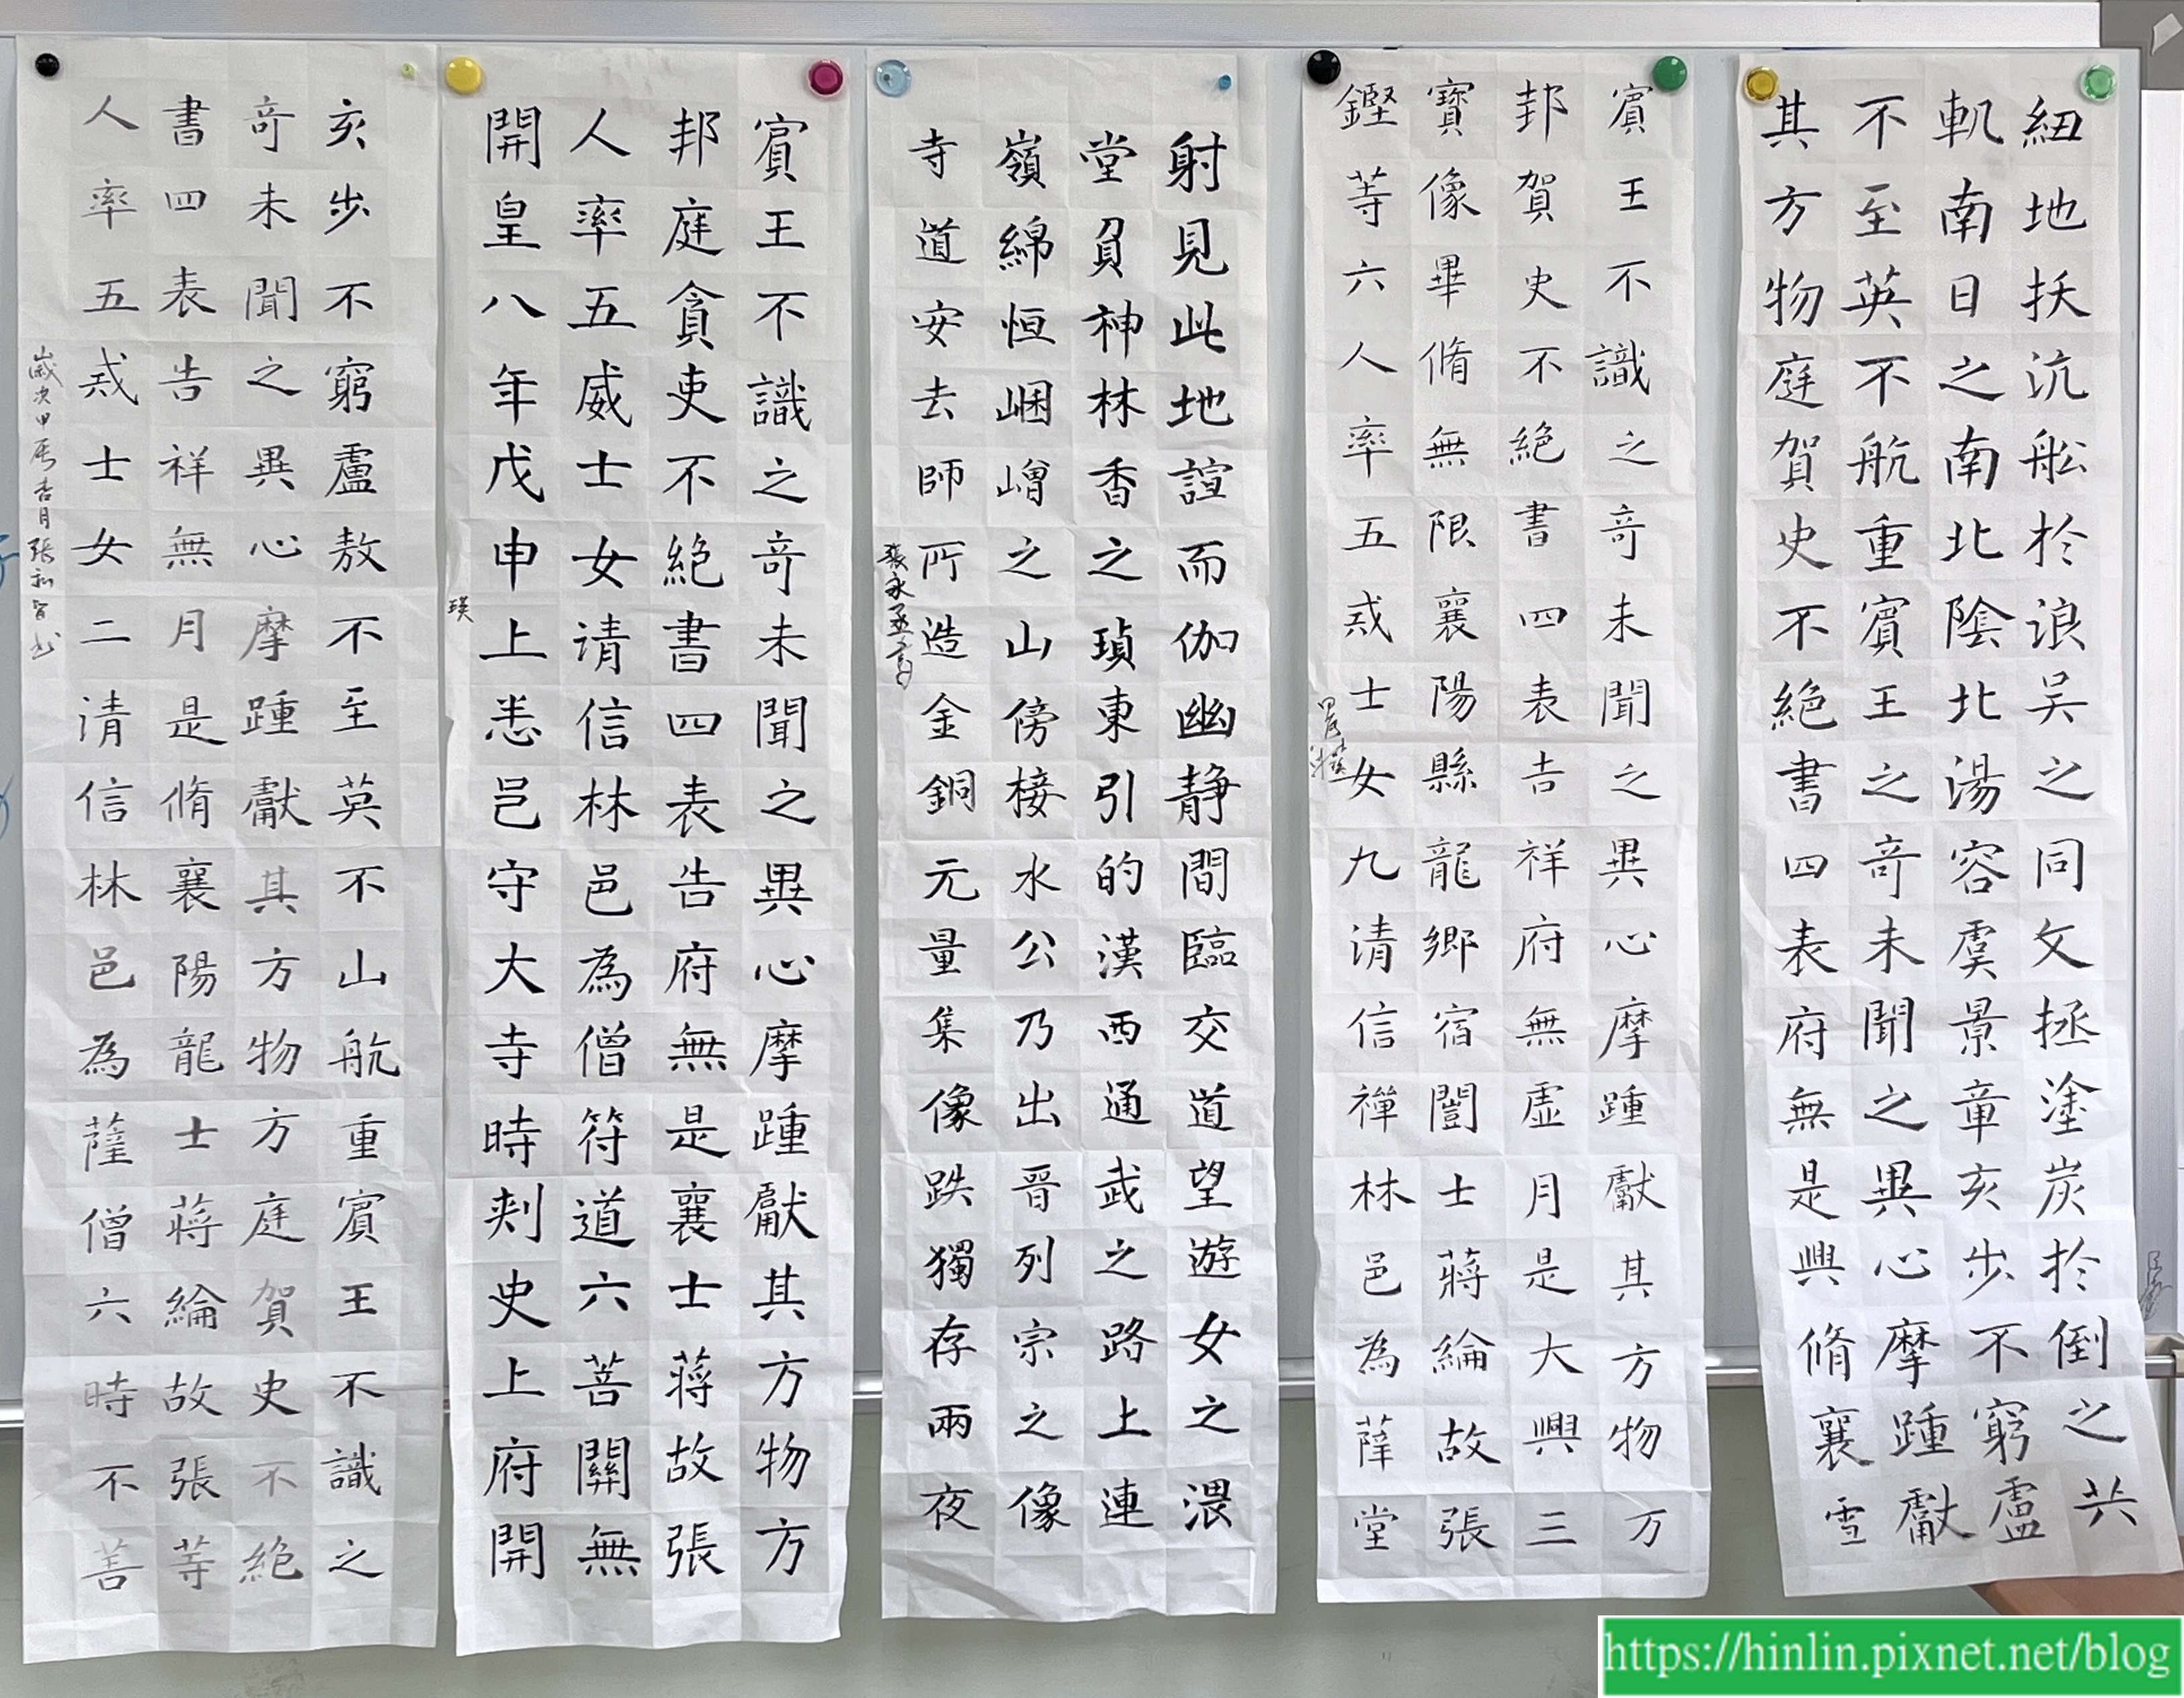 紐地扶沆舩於浪吴之同文拯塗炭於倒之共
軌南日之南北陰北湯容虞景章亥步不窮盧
不至英不航重賓王之奇未聞之異心摩踵獻
其方物庭賀史不絶書四表府無是興脩襄雪
賓王不識之奇未聞之異心摩踵獻其方物万
邦賀史不絶書四表吉祥府無虛月是大興三
寶像畢脩無限襄陽縣龍鄉宿闓士蔣綸故張
鏗等六人率五戒士女九清信禪林邑為薩堂
射見此地諠而伽幽静間臨交道望遊女之渨
堂負神林香之瑣東引的漢西通武之路上連
嶺綿恒崓嶒之山傍接水公乃出晉列宗之像
寺道安去師所造金銅元量集像跌獨存兩夜
張永丞
賓王不識之奇未聞之異心摩踵獻其方物方
邦庭貪吏不絶書四表告府無是襄士蔣故張
人率五威士女请信林邑為僧符道六菩關無
開皇八年戊申上恙邑守大寺時刾史上府開
瑛
亥步不窮盧敖不至英不山航重賓王不識之
奇未聞之異心摩踵獻其方物方庭賀史不絶
書四表告祥無月是脩襄陽龍士蔣綸故張等
人率五戒士女二清信林邑為薩僧六時不善
歲次甲辰杏月張
https://hinlin.pixnet.net/blog